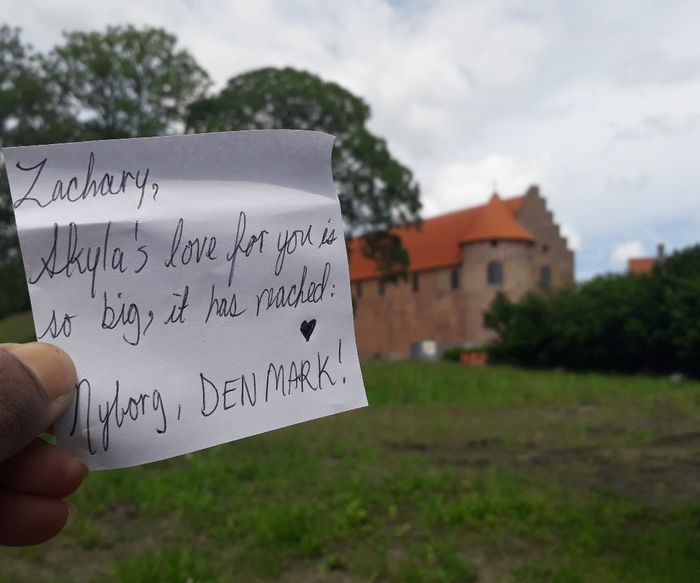 Zachary,
Skyla's love for you is
so big, it has reached:
♥
Nyborg, DENMARK!